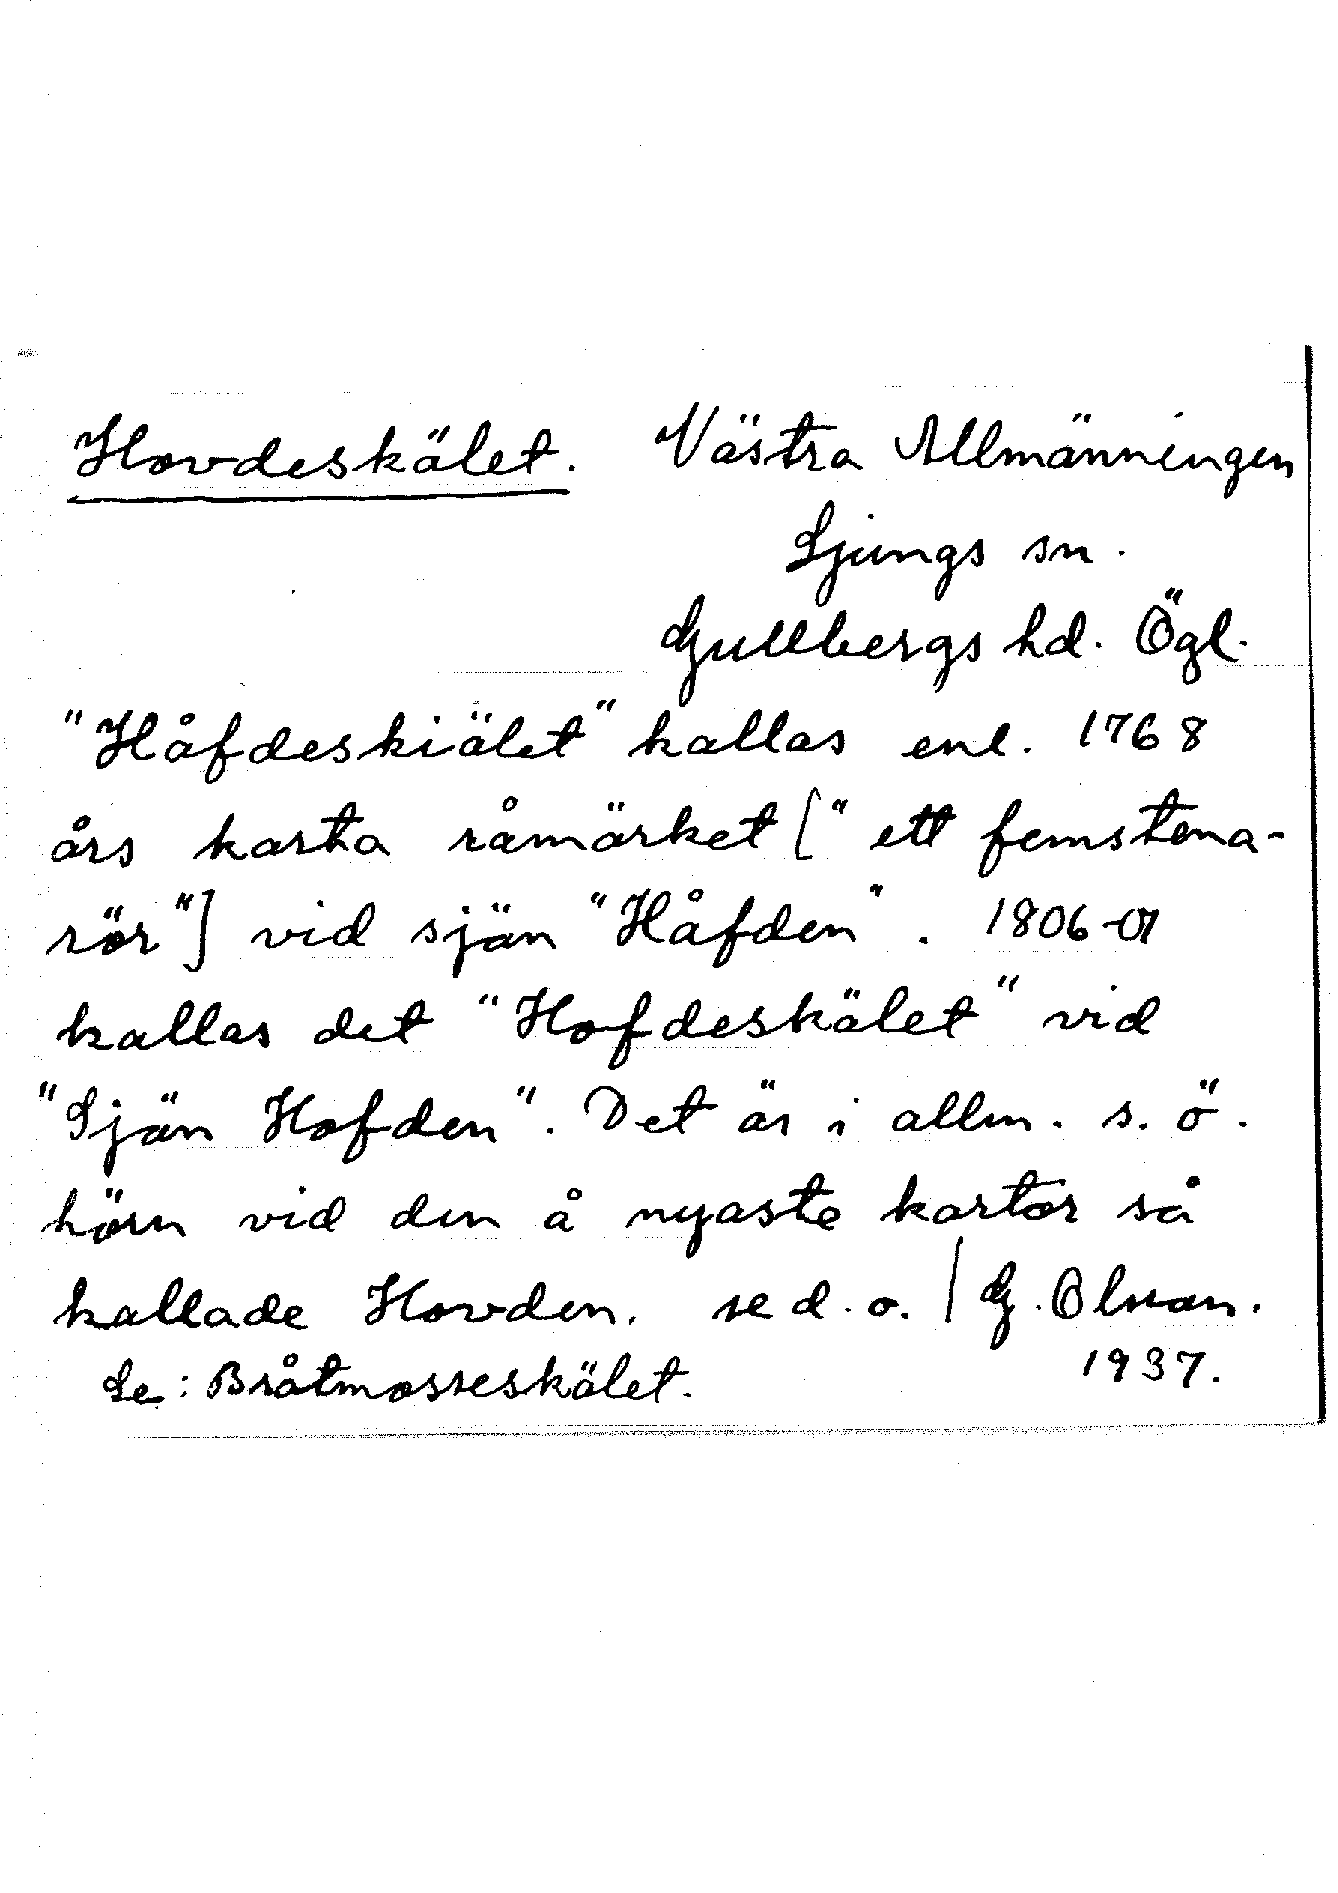 Hovdeskälet. Västra Allmänningen
Ljungs sn.
Gullbergs hd. Ögl.
"Håfdeskiälet" kallas enl. 1768
års karta råmärket ["ett femstena-
rör"] vid sjön "Håfden". 1806-07
kallas det "Hofdeskälet" vid
"Sjön Hofden". Det är i allm. s. ö.
hörn vid den å nyaste kartor så
kallade Hovden. se d. o. / G. Olsson.
Se: Bråtmosseskälet. 1937.